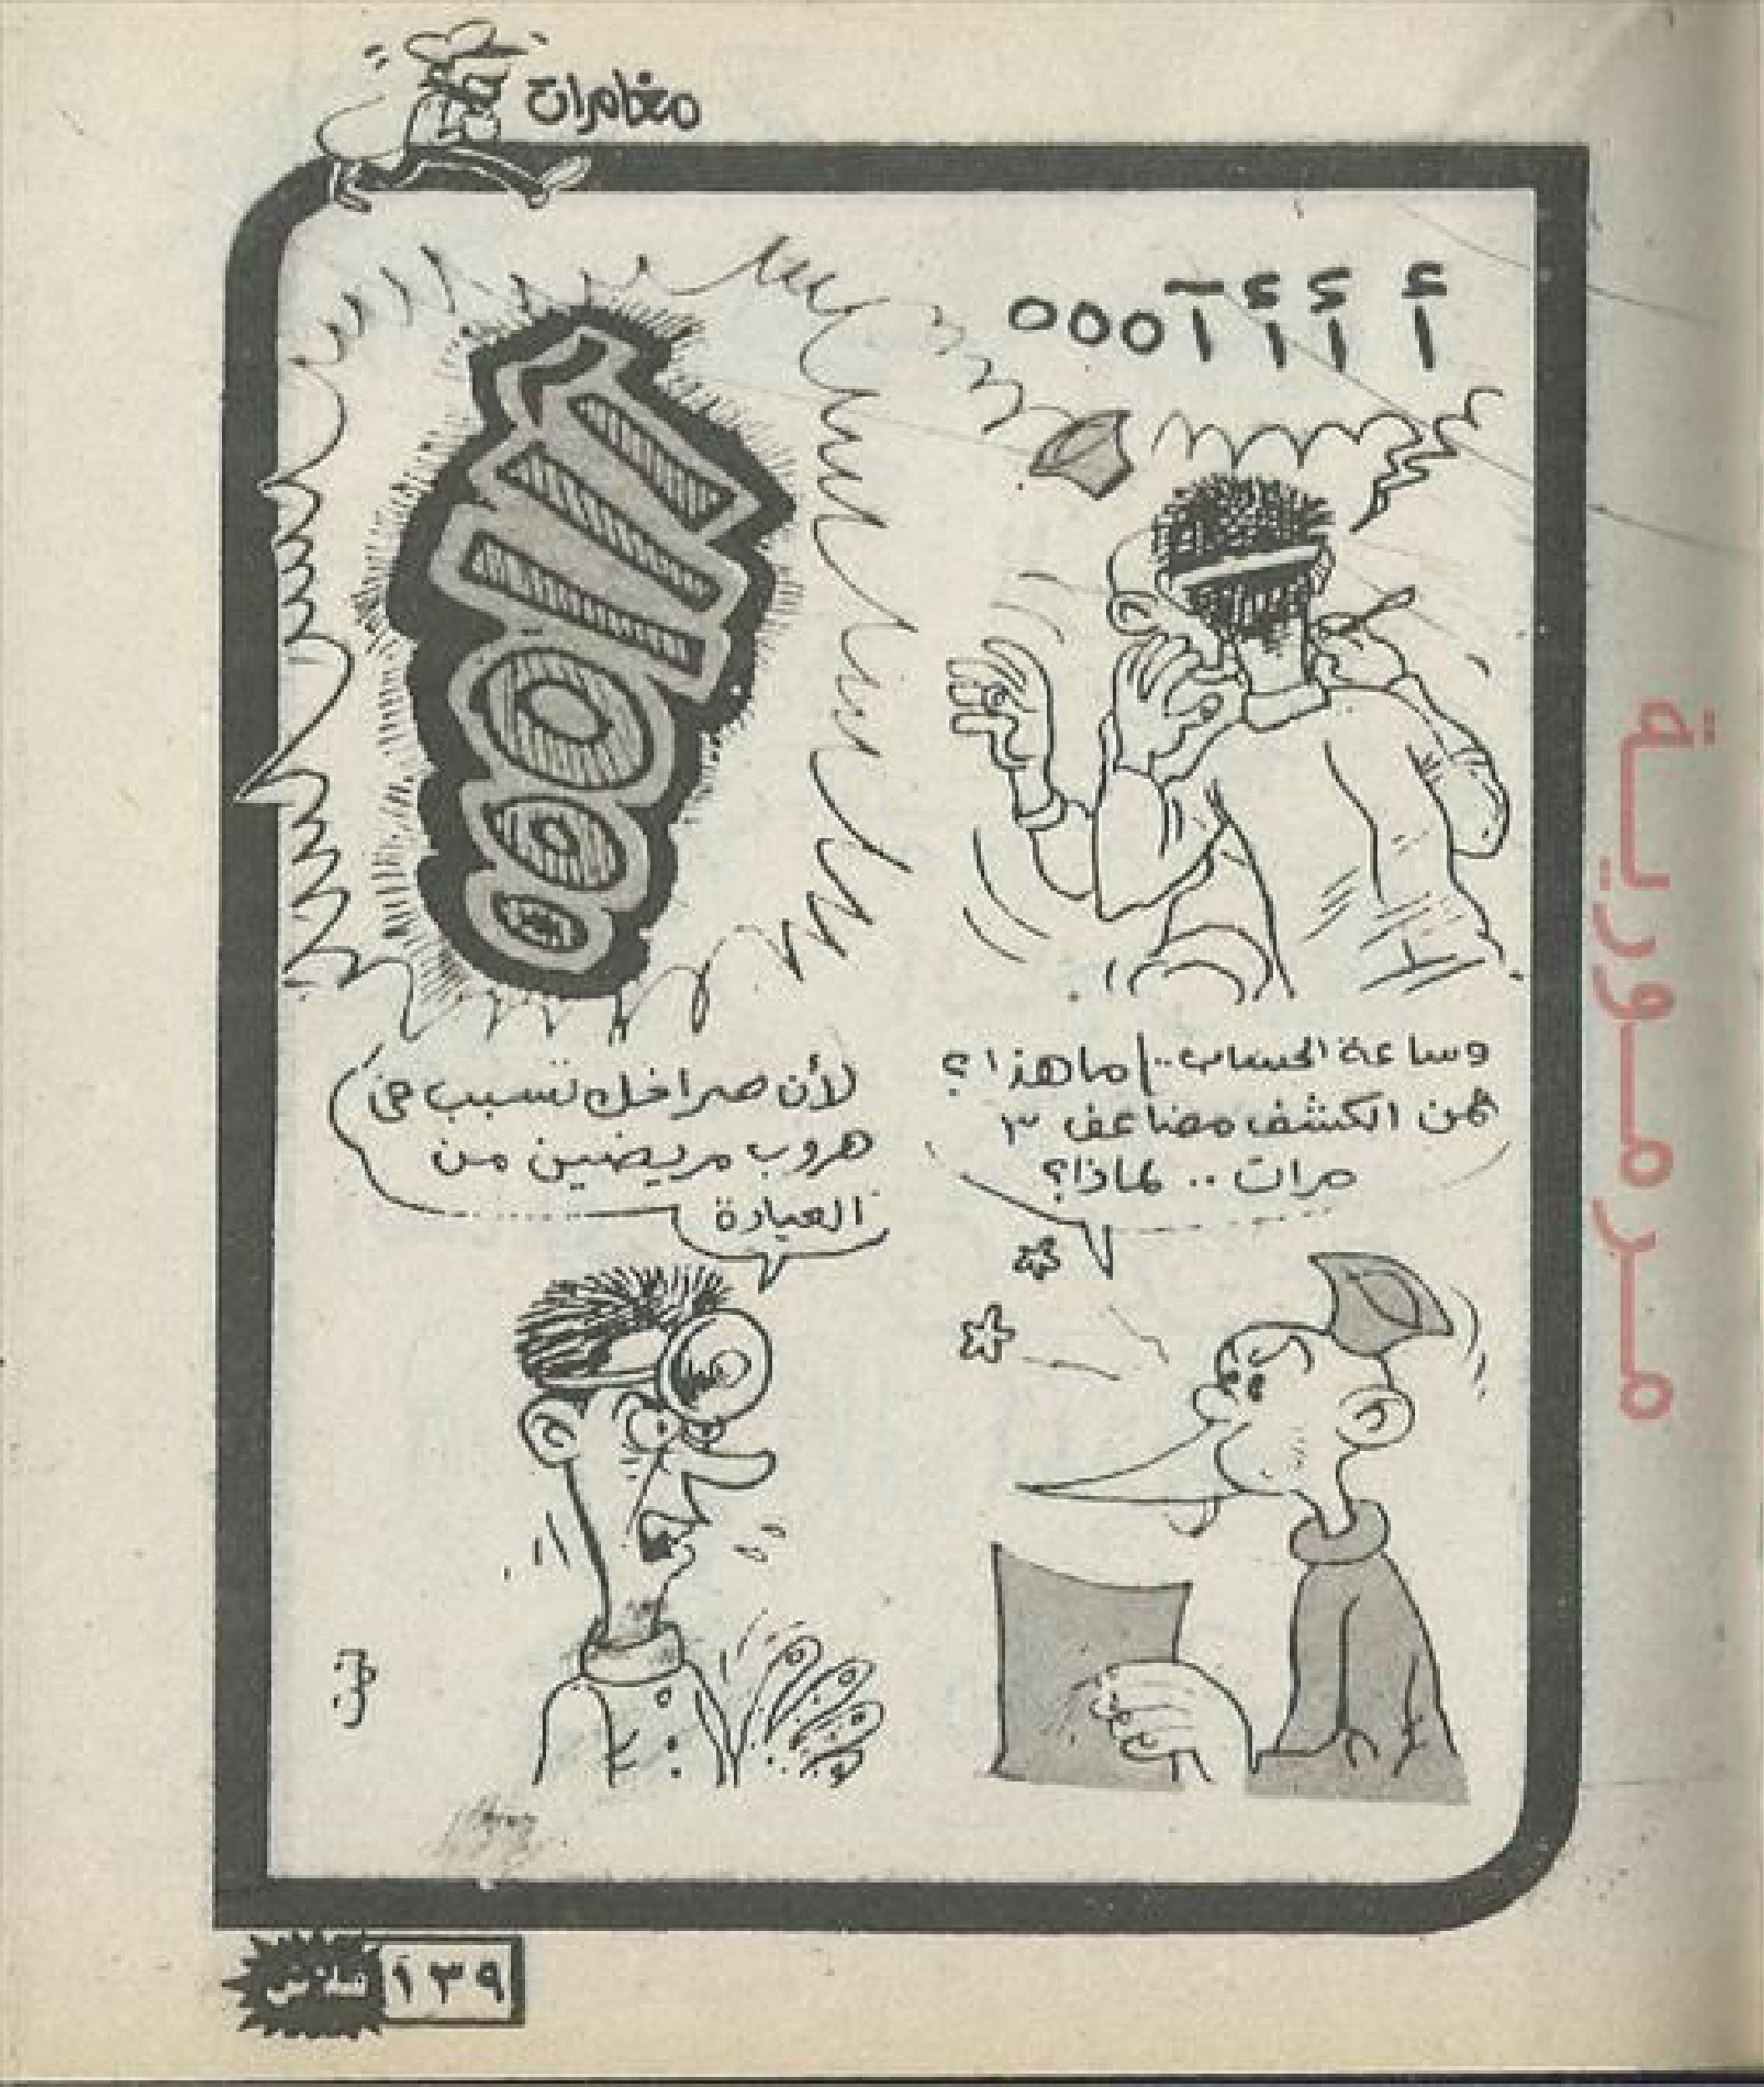 مغامرات
أ أ أ آ ه ه ه
آااه ه ه
وساعة الحساب.. ما هذا؟
ثمن الكشف مضاعف ٣
مرات .. لماذا؟
لأن صراخك تسبب فى
هروب مريضين من
العيادة
مرمورية
١٣٩
فلاش